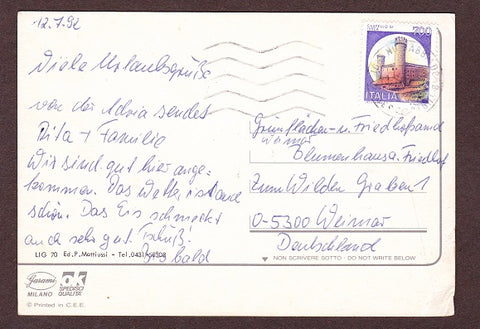 12.7.92
Viele Urlaubsgrüße
von der Adria sendet
Rita + Familie
Wir sind gut hier ange-
kommen. Das Wetter ist auch
schön. Das Eis schmeckt
auch sehr gut. Tschüß!
Bis bald
700
ITALIA
Grünflächen- u. Friedhofsamt
Weimar
Blumenhaus a. Friedhof
Zum Wilden Graben 1
O-5300 Weimar
Deutschland
LIG 70 Ed. P. Mattiussi - Tel. 0431-
NON SCRIVERE SOTTO - DO NOT WRITE BELOW
Garami
MILANO
SPEDISCI
QUALITA'
© Printed in C.E.E.